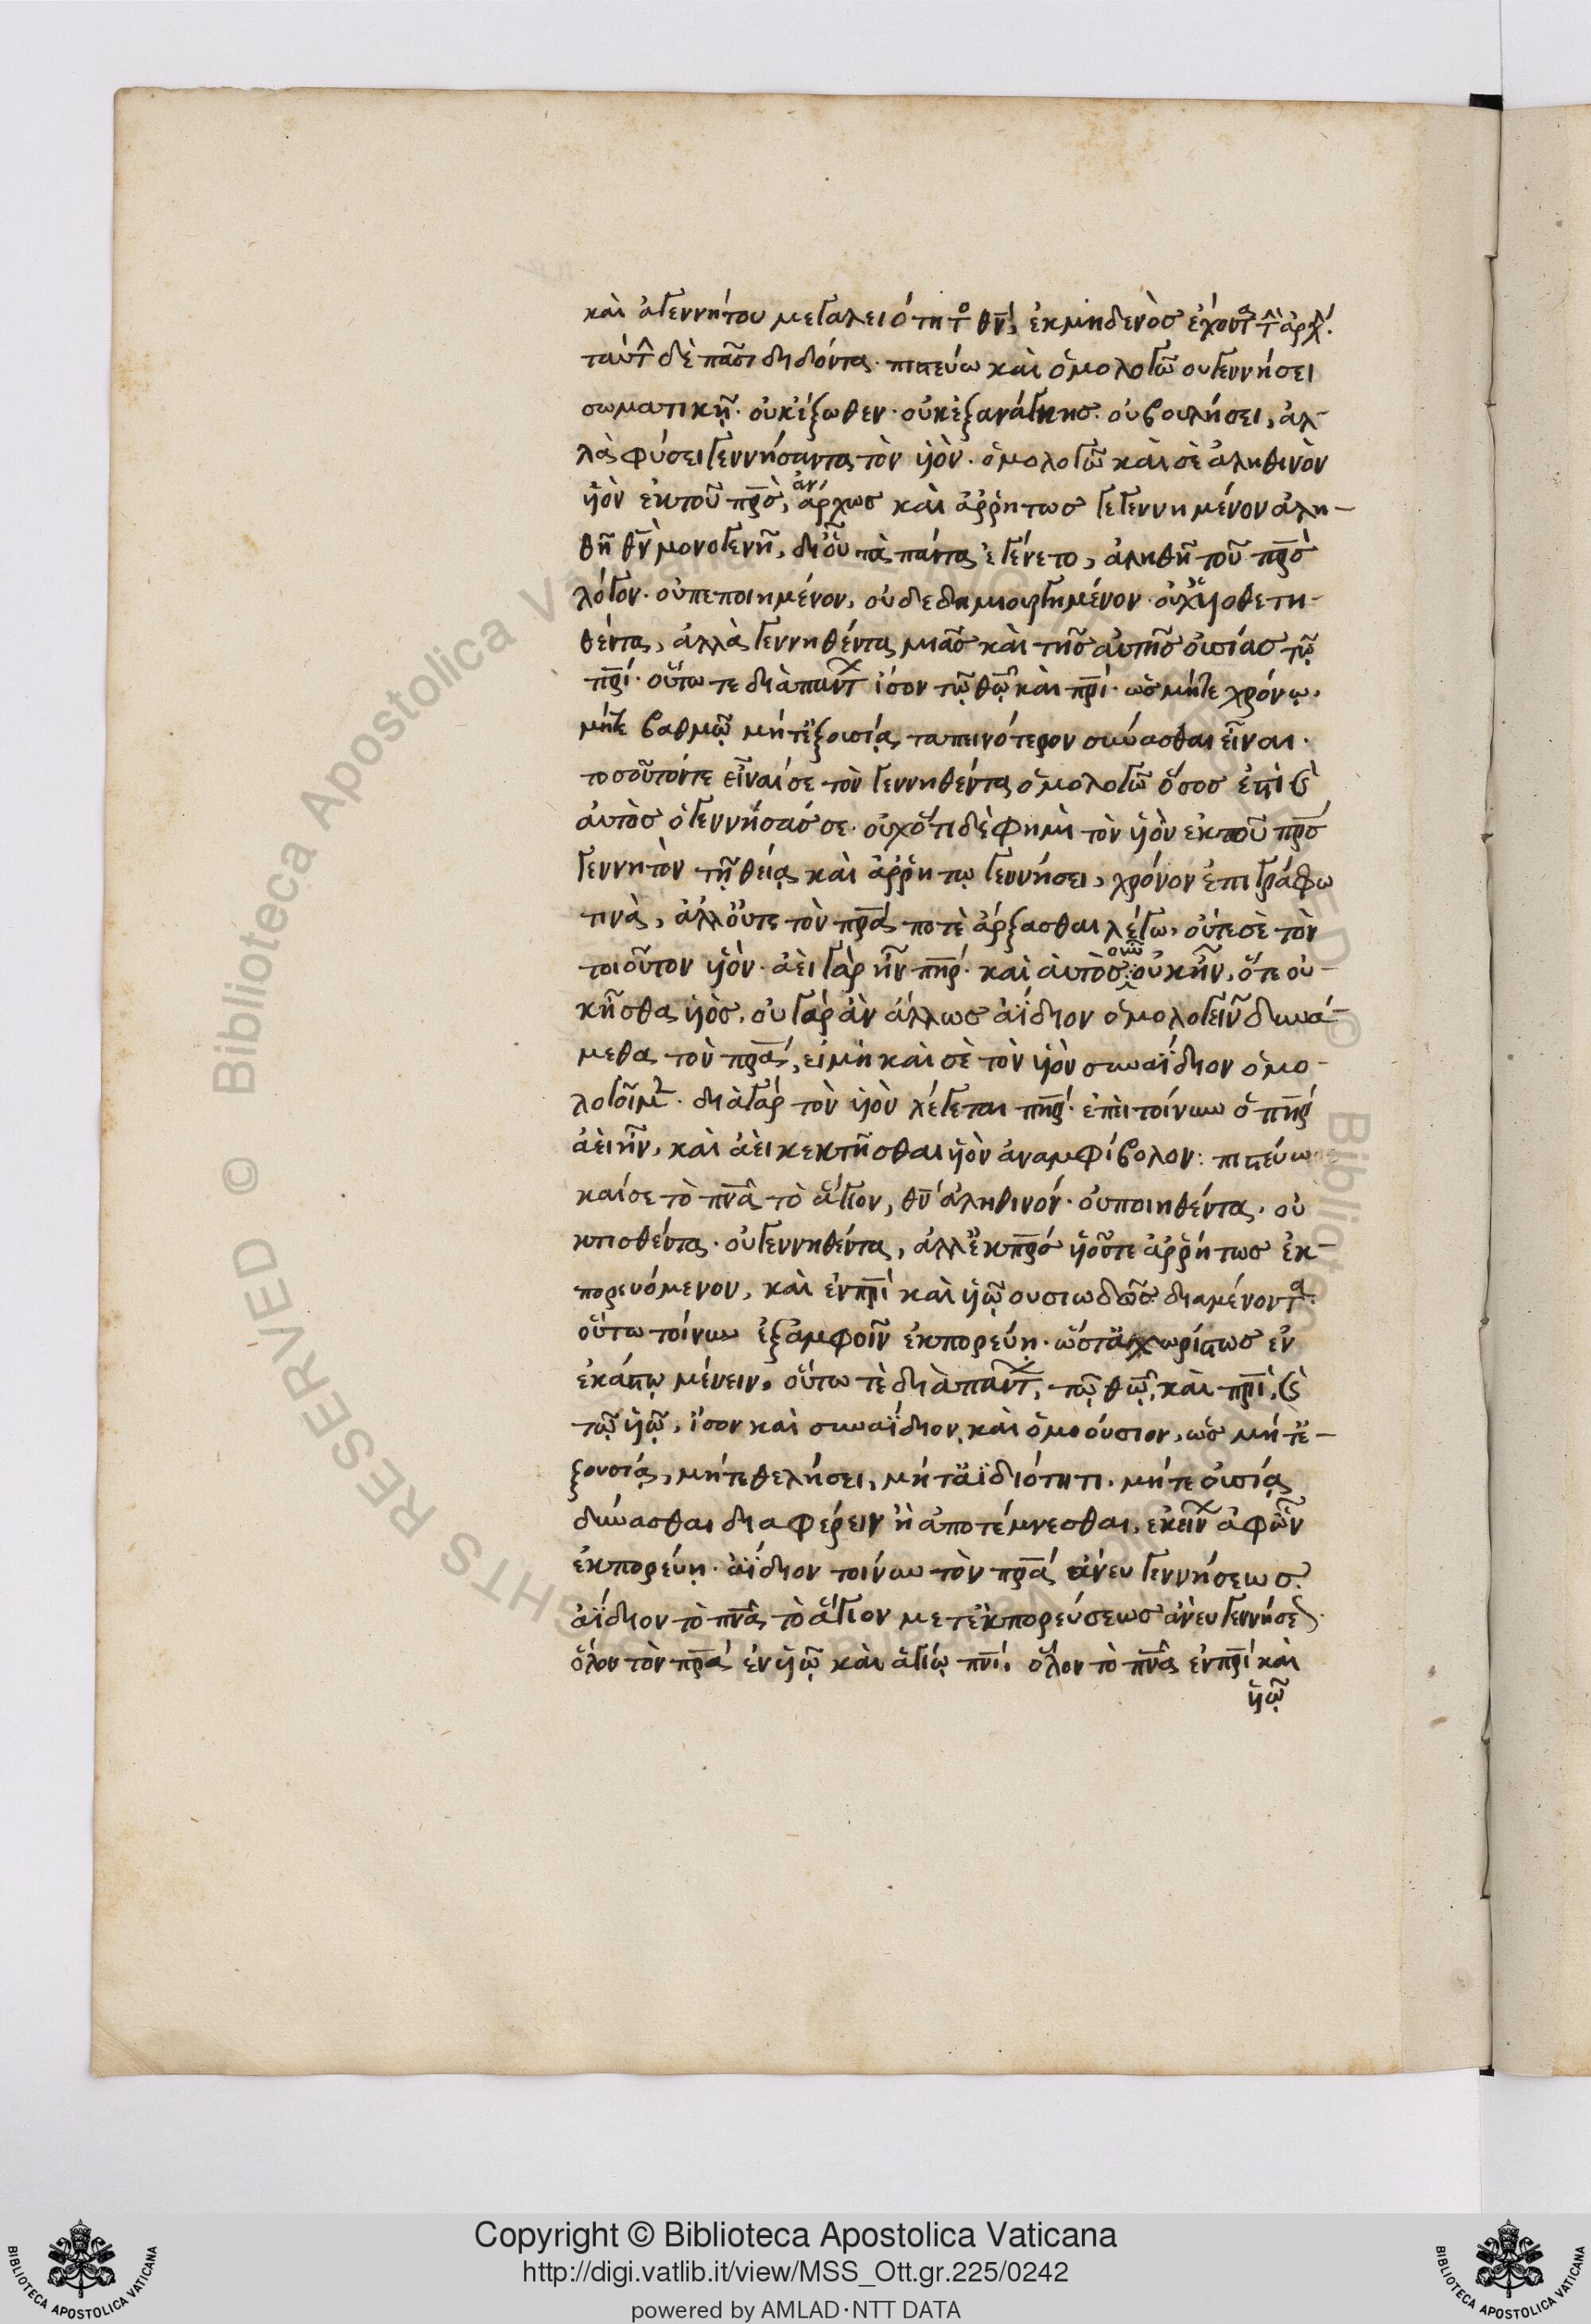 καὶ ἀγεννήτου μεγαλειότητο θν, ἐκ μηδενὸσ ἔχοντα τ ἀρχ.
ταύτ δὲ πᾶσι διδόντα. πιστεύω καὶ ὁμολογῶ ου γεννήσει
σωματικῇ. οὐκ έξωθεν. οὐκ ἐξ ανάγκησ. οὐ βουλήσει, ἀλ-
λὰ φύσει γεννήσαντα τὸν ϋἱὸν. ὁμολογῶ καὶ σὲ ἀληθινὸν
ϋἱὸν ἐκ τοῦ πρσ, ἀνάρχωσ καὶ ἀῤῥήτωσ γεγεννημένον ἀλη-
θῆ θν μονογενῆ, δι οὗ τὰ πάντα ἐγένετο, ἀληθῆ τοῦ πρσ
λόγον. οὐ πεποιημένον, οὐ δεδημιουργημένον. οὐχ ϋἱοθετη-
θέντα, ἀλλὰ γεννηθέντα μιᾶσ καὶ τῆσ αὐτῆσ οὐσίασ τῷ
πρί. οὕτω τε διὰ παντ ἴσον τῷ θῷ καὶ πρί. ὡσ μήτε χρόνῳ.
μήτε βαθμῷ μήτ ἐξουσίᾳ ταπεινότερον δύνασθαι εἶναι.
τοσοῦτόν τε εἶναί σε τὸν γεννηθέντα ὁμολογῶ ὅσοσ ἐστὶ καὶ
αὐτὸσ ὁ γεννήσασ σε. οὐχ ὅτι δὲ φημὶ τὸν ϋἱὸν ἐκ τοῦ πρσ
γεννητὸν τῇ θείᾳ καὶ ἀῤῥήτῳ γεννήσει, χρόνον ἐπιγράφω
τινὰ, ἀλλ οὔτε τὸν πρα ποτὲ ἄρξασθαι λέγω, οὔτε σὲ τὸν
τοιοῦτον ϋἱὸν. ἀεὶ γὰρ ἦν πηρ. καὶ αὐτὸσ οὐκ ἦν, ὅτε οὐ-
κ ἦσθα ϋἱὸσ. οὐ γὰρ ἀν ἄλλωσ ἀΐδιον ὁμολογεῖν δυνά-
μεθα τὸν πρα, εἰ μὴ καὶ σὲ τὸν ϋἱὸν συναΐδιον ὁμο-
λογοῖμ. διὰ γὰρ τὸν ϋἱὸν λέγεται πηρ. ἐπεὶ τοίνυν ὁ πηρ
ἀεὶ ἦν, καὶ ἀεὶ κεκτῆσθαι ϋἱὸν ἀναμφίβολον: πιστεύω
καί σε τὸ πνα τὸ ἅγιον, θν ἀληθινόν. οὐ ποιηθέντα. οὐ
κτισθέντα. οὐ γεννηθέντα, ἀλλ ἐκ πρσ ϋἱοῦ τε ἀῤῥήτωσ ἐκ-
πορευόμενον, καὶ ἐν πρὶ καὶ ϋἱῷ ουσιωδῶσ διαμένοντα.
οὕτω τοίνυν ἐξ ἀμφοῖν ἐκπορεύῃ. ὥστ ἀχωρίστωσ ἐν
ἑκάστῳ μένειν. οὕτω τὲ διὰ παντ, τῷ θῷ, καὶ πρὶ, καὶ
τῷ ϋἱῷ, ἴσον καὶ συναΐδιον, καὶ ὁμοούσιον, ὡσ μήτ ἐ-
ξουσίᾳ, μήτε θελήσει, μήτ ἀϊδιότητι. μήτε οὐσίᾳ
δύνασθαι διαφέρειν ἢ ἀποτέμνεσθαι, εκείν ἀφ ὧν
ἐκπορεύῃ. ἀΐδιον τοίνυν τὸν πρα άνευ γεννήσεωσ.
ἀΐδιον τὸ πνα τὸ ἅγιον μετ ἐκπορεύσεωσ ἄνευ γεννήσε.
ὅλον τὸν πρα ἐν ϋἱῷ καὶ ἁγίῳ πνι. ὅλον τὸ πνα ἐν πρὶ καὶ
ϋἱῷ
Copyright © Biblioteca Apostolica Vaticana
http://digi.vatlib.it/view/MSS_Ott.gr.225/0242
powered by AMLAD·NTT DATA